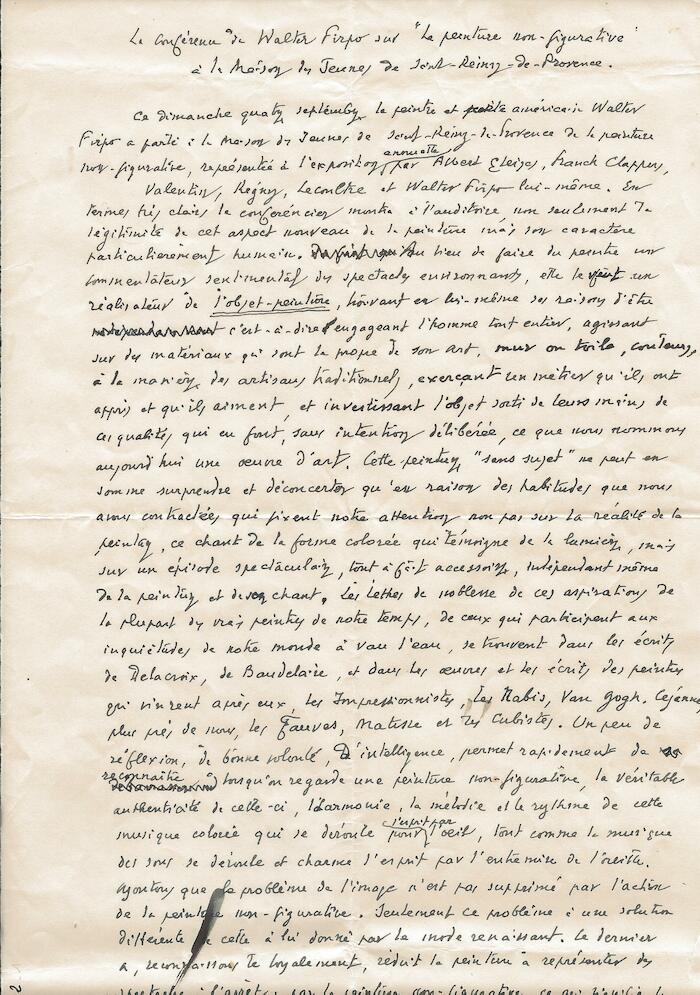 La conférence de Walter Firpo sur "La peinture non-figurative"
à la Maison des Jeunes de Saint-Remy-de-Provence.
Ce dimanche quatre septembre le peintre et poète américain Walter
Firpo a parlé à la Maison des Jeunes de Saint-Remy-de-Provence de la peinture
non-figurative, représentée à l'exposition annuelle par Albert Gleizes, Franck Clappers,
Valentin, Regny, Lecoultre et Walter Firpo lui-même. En
termes très clairs le conférencier montra à l'auditoire, non seulement la
légitimité de cet aspect nouveau de la peinture mais son caractère
particulièrement humain. Au lieu de faire du peintre un
commentateur sentimental des spectacles environnants, elle le veut un
réalisateur de l'objet-peinture, trouvant en lui-même ses raisons d'être
c'est-à-dire engageant l'homme tout entier, agissant
sur des matériaux qui sont le propre de son art, mur ou toile, couleurs,
à la manière des artisans traditionnels, exerçant un métier qu'ils ont
appris et qu'ils aiment, et investissant l'objet sorti de leurs mains de
ces qualités qui en font, sans intention délibérée, ce que nous nommons
aujourd'hui une œuvre d'art. Cette peinture "sans sujet" ne peut en
somme surprendre et déconcerter qu'en raison des habitudes que nous
avons contractées qui fixent notre attention non pas sur la réalité de la
peinture, ce chant de la forme colorée qui témoigne de la lumière, mais
sur un épisode spectaculaire, tout à fait accessoire, indépendant même
de la peinture et de son chant. Les lettres de noblesse de ces aspirations de
la plupart des vrais peintres de notre temps, de ceux qui participent aux
inquiétudes de notre monde à vau l'eau, se trouvent dans les écrits
de Delacroix, de Baudelaire, et dans les œuvres et les écrits des peintres
qui vinrent après eux, les Impressionnistes, les Nabis, Van Gogh, Cézanne,
plus près de nous, les Fauves, Matisse et les Cubistes. Un peu de
réflexion, de bonne volonté, d'intelligence, permet rapidement de
reconnaître lorsqu'on regarde une peinture non-figurative, la véritable
authenticité de celle-ci, l'harmonie, la mélodie et le rythme de cette
musique colorée qui se déroule pour l'esprit par l'oeil, tout comme la musique
des sons se déroule et charme l'esprit par l'entremise de l'oreille.
Ajoutons que le problème de l'image n'est pas supprimé par l'action
de la peinture non-figurative. Seulement ce problème a une solution
différente de celle à lui donné par la mode renaissant. Ce dernier
a, reconnaissons le loyalement, réduit la peinture à représenter des